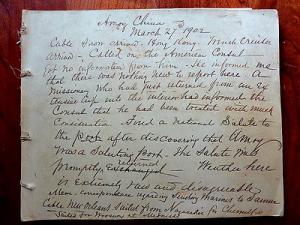 Amoy China
March 27, 1902
Cable from arrived Hong Kong. French Cruiser
arrived - Called on the American Consul
got no information from him. He informed me
that there was nothing new to report here. A
missionary who had just returned from an ex
tensive trip into the interior had informed the
Consul that he had been treated with much
Consideration. Fired a National Salute to
the port after discovering that Amoy
was a Saluting port. The Salute was
promptly returned Weather here
is extremely raw and disagreeable
Mem. Correspondence regarding sending Marines to
Cable New Orleans Sailed from for Chemulpo